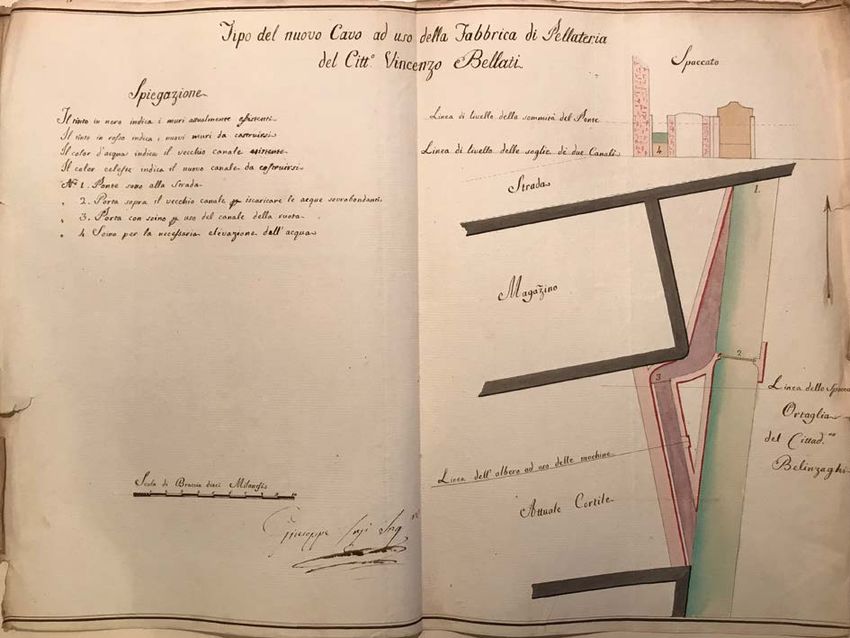 Tipo del nuovo Cavo ad uso della Fabbrica di Pellateria
del Citt.º Vincenzo Bellati
Spiegazione
Il tinto in nero indica i muri attualmente esistenti
Il tinto in rosso indica i nuovi muri da costruirsi
Il color d'acqua indica il vecchio canale esistente
Il color celeste indica il nuovo canale da costruirsi
Nº 1. Ponte sotto alla Strada
" 2. Porta sopra il vecchio canale p iscaricare le acque sovrabbondanti
" 3. Porta con soino p uso del canale della ruota
" 4. Soino per la necessaria elevazione dell'acqua
Scala di Braccia dieci Milanesi
Giuseppe Ing
Spaccato
Linea di livello della sommità del Ponte
Linea di livello delle soglie de due Canali
4
Strada
1.
Magazino
2
3
Linea dello Spacca
Ortaglia
del Cittad.no
Belinzaghi
Linea dell'albero ad uso delle machine
Attuale Cortile